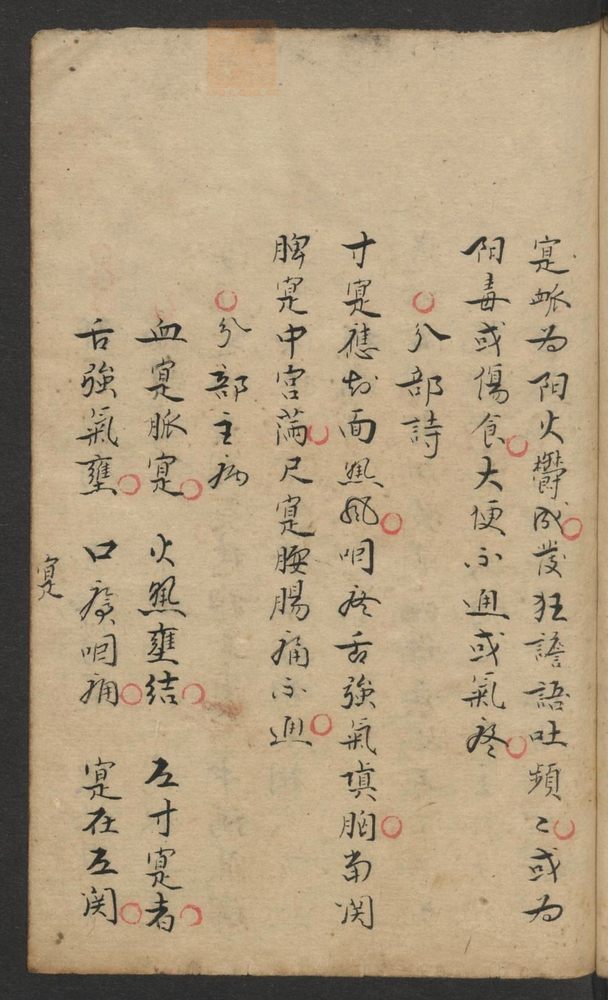 寔脉為阳火欝成發狂譫語吐頻〻或為
阳毒或傷食大便不通或氣疼
分部詩
寸寔應知面热風咽疼舌強氣填胸當関
脾寔中宮滿尺寔腰腸痛不通
分部主病
血寔脈寔 火热壅結 左寸寔者
舌強氣壅 口瘡咽痛 寔在左関
寔